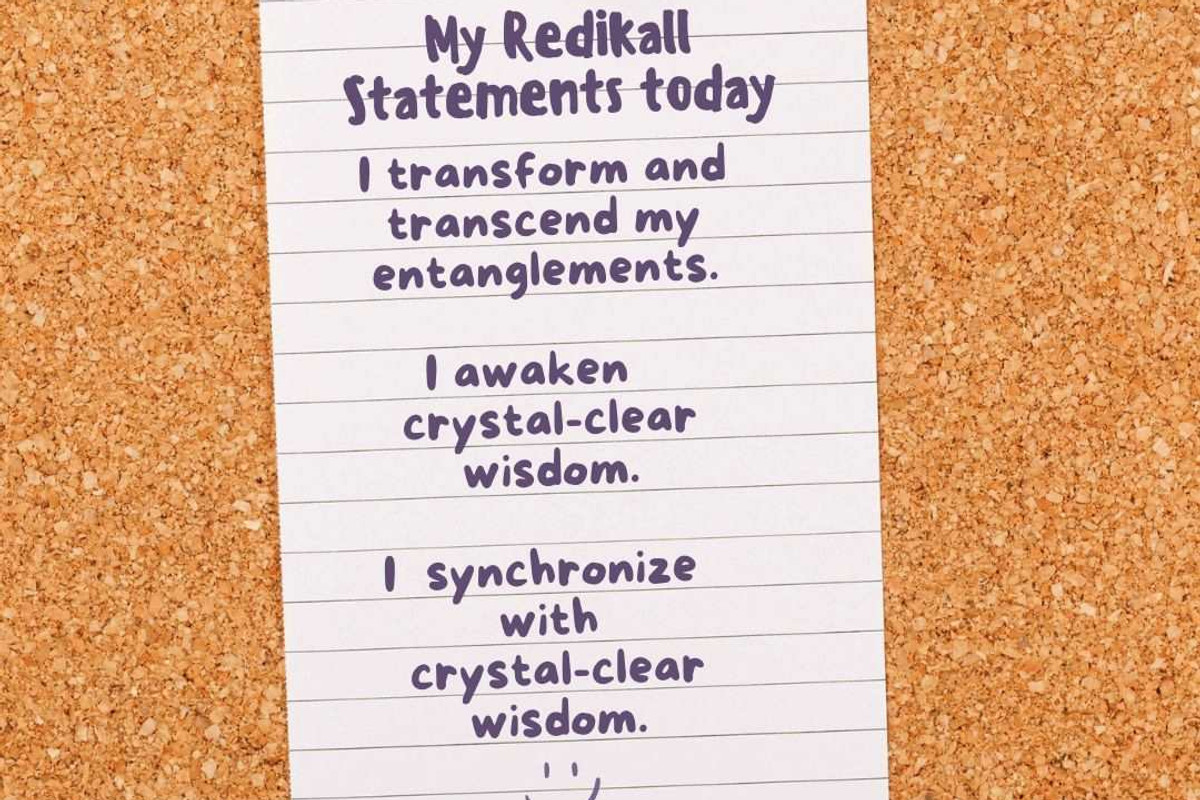 My Redikall
Statements today
I transform and
transcend my
entanglements.
I awaken
crystal-clear
wisdom.
I synchronize
with
crystal-clear
wisdom.